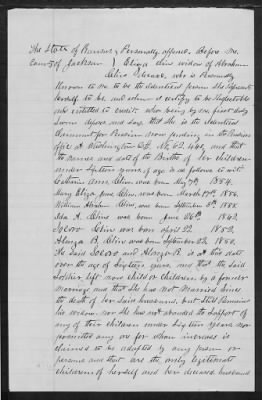 The State of Kansas } Personally appeared Before Me
County of Jackson } Eliza Cline widow of Abraham
Cline Deceased, who is Personally
Known to me to be the identical person She Represents
herself to be, and whom I certify to be Reputable
and entitled to credit, who being by me first duly
Sworn deposes and Says that She is the identical
Claimant for Pension Now pending in the Pension
office at Washington
the names and date of the Births of her children
under Sixteen years of age is as follows to wit
Cline was born May 7th 1854.
Mary Eliza Jane Cline, was born March 17th 1856.
William Abraham Cline, was born September 8th 1858.
Ida A. Cline was born June 26th 1862.
Cline was born April 22 1852.
Alonzo B. Cline was born September 22, 1850.
The Said and Alonzo B. is at this date
over the age of Sixteen years, and that the Said
Soldier left no Child or Children by a former
Marriage and that She has Not Married Since
the death of her Said husband, but Still Remains
his widow, nor She has not abandoned the Support of
any of their children under Sixteen years nor
permitted any one for whom increase is
claimed to be adopted by any person or
persons and that are the only legitimate
children of herself and her deceased husband